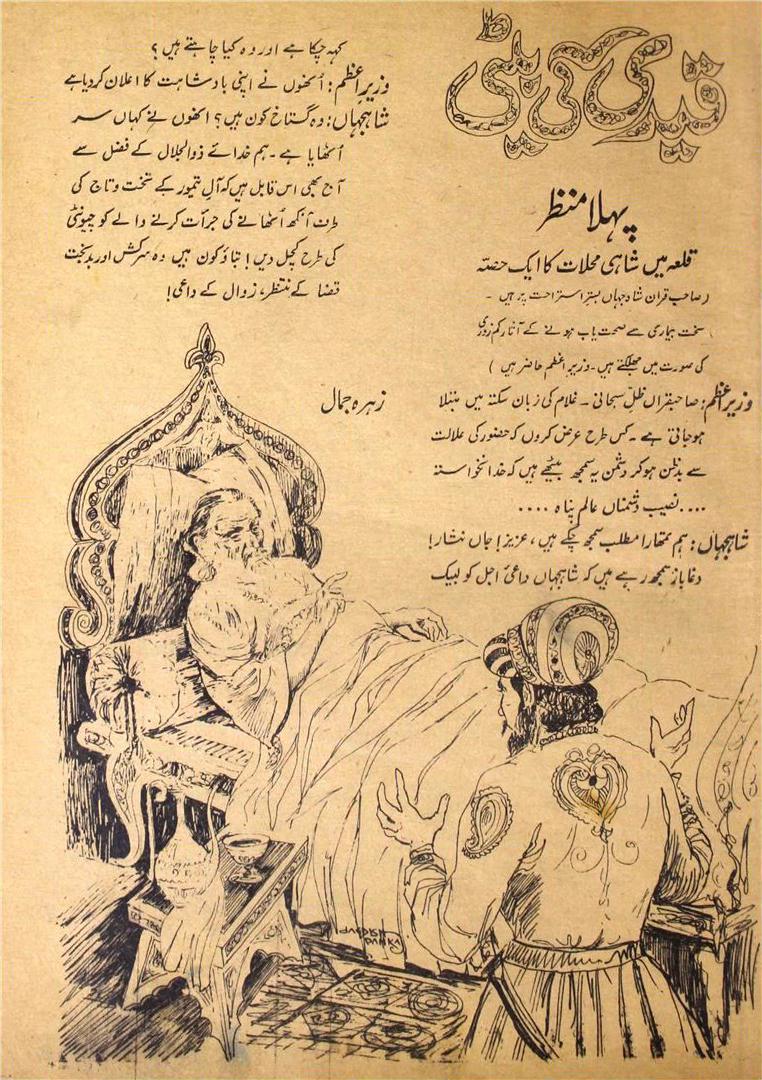 قیدی کی بیٹی
پہلا منظر
قلعہ میں شاہی محلات کا ایک حصّہ
(صاحب قران شاہجہاں بستر استراحت پر ہیں ۔
سخت بیماری سے صحت یاب ہونے کے آثار کمزوری
کی صورت میں جھلکتے ہیں۔ وزیرِ اعظم حاضر ہیں )
وزیرِ اعظم: صاحبقراں ظلِّ سبحانی ۔ غلام کی زبان سکتہ میں مبتلا
ہوجاتی ہے ۔ کس طرح عرض کروں کہ حضور کی علالت
سے بدظن ہوکر دشمن یہ سمجھ بیٹھے ہیں کہ خدانخواستہ
.... نصیب دشمناں عالم پناہ ....
شاہجہاں: ہم تمھارا مطلب سمجھ چکے ہیں، عزیز! جاں نثار!
دغاباز سمجھ رہے ہیں کہ شاہجہاں داعیِ اجل کو لبیک
کہہ چکا ہے اور وہ کیا چاہتے ہیں ؟
وزیرِ اعظم: اُنھوں نے اپنی بادشاہت کا اعلان کردیا ہے
شاہجہاں: وہ گستاخ کون ہیں؟ انھوں نے کہاں سر
اُٹھایا ہے ۔ ہم خدائے ذوالجلال کے فضل سے
آج بھی اس قابل ہیں کہ آلِ تیمور کے تخت و تاج کی
طرف آنکھ اُٹھانے کی جرأت کرنے والے کو چیونٹی
کی طرح کچل دیں! بتاؤ کون ہیں وہ سرکش اور بدبخت
قضا کے منتظر، زوال کے داعی!
زہرہ جمال